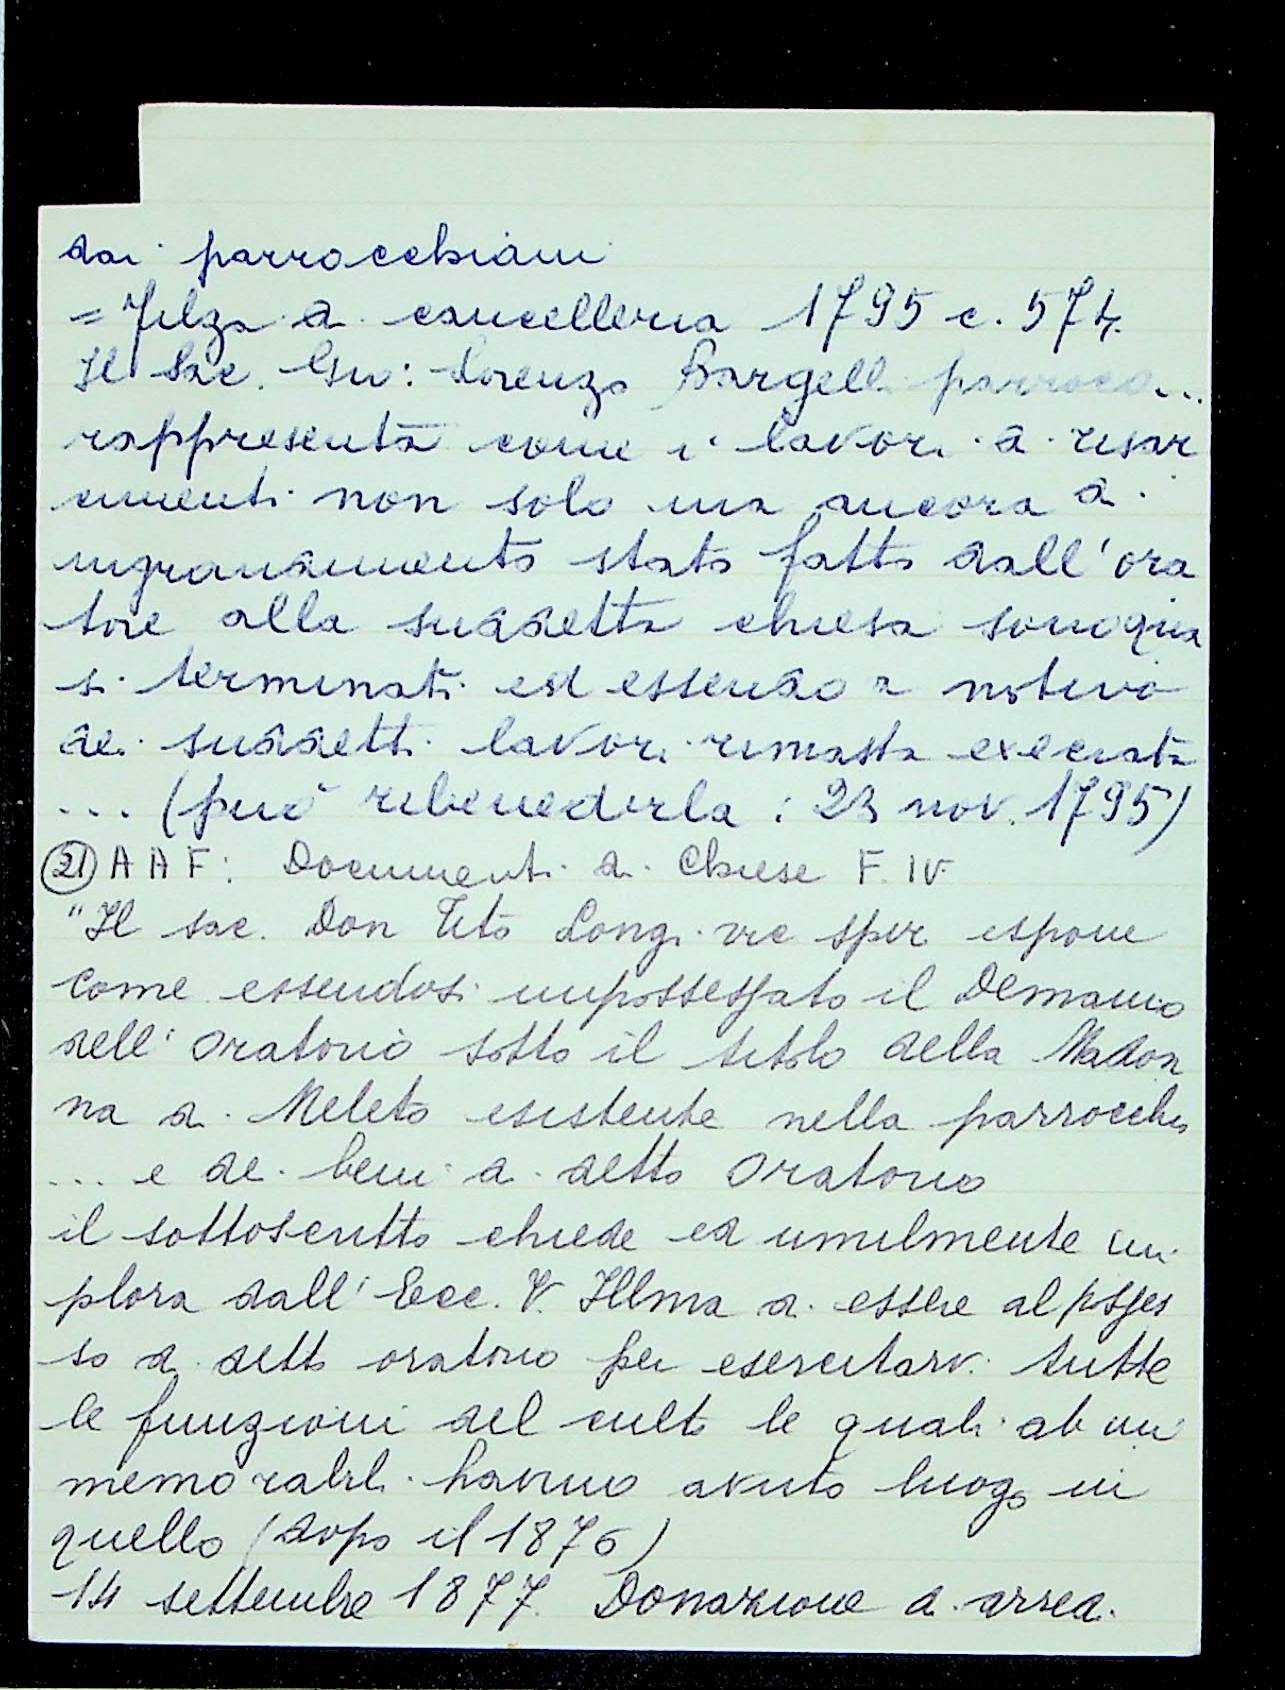 dai parrocchiani
= Filza di cancelleria 1795 c. 574.
Il Sac. Giu: Lorenzo Bargelli parroco...
rappresenta come i lavori di resar
cimenti non solo ma ancora di
ingrandimento stato fatto dall'ora
tore alla suddetta chiesa sono qua
si terminati ed essendo a motivo
dei suddetti lavori rimasta execrata
... (può ribenedirla : 23 nov. 1795)
(21) A A F: Documenti di Chiese F. IV
"Il sac. Don Tito Longi vic sper espone
come essendosi impossessato il Demanio
dell'oratorio sotto il titolo della Madon
na di Meleto esistente nella parrocchia
... e dei beni di detto Oratorio
il sottoscritto chiede ed umilmente im
plora dall' Ecc. V. Illma di essere al posses
so di detto oratorio per esercitarvi tutte
le funzioni del culto le quali ab im
memorabili hanno avuto luogo in
quello (dopo il 1876)
14 settembre 1877 Donazione di arred.